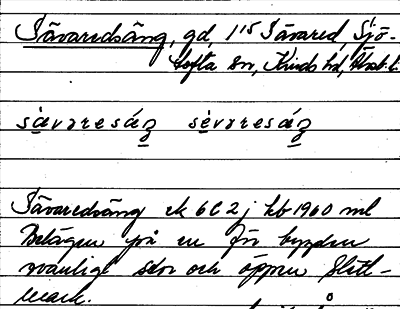 Sävaredsäng, gd, 1/15 Sävared, Sjö-
tofta sn, Kinds hd, Älvsb. l.
sàvaresáŋ sèvaresáŋ
Sävaredsäng ek 6C2j hb 1960 ml
Belägen på en för bygden
ovanligt stor och öppen slätt-
mark.